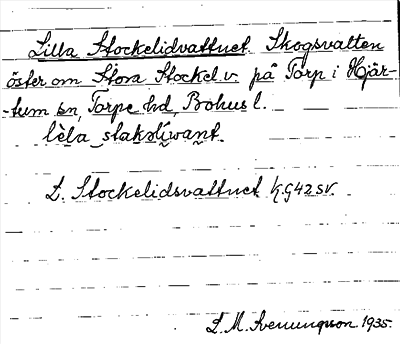 Lilla Stockelidvattnet. Skogsvatten
öster om Stora Stockel.v. på Torp i Hjär-
-tum sn, Torpe hd, Bohus l.
lèla stakslíwant.
L. Stockelidsvattnet k.G42SV.
L. M. Svenungsson 1935.